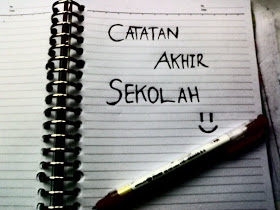 CATATAN
AKHIR
SEKOLAH